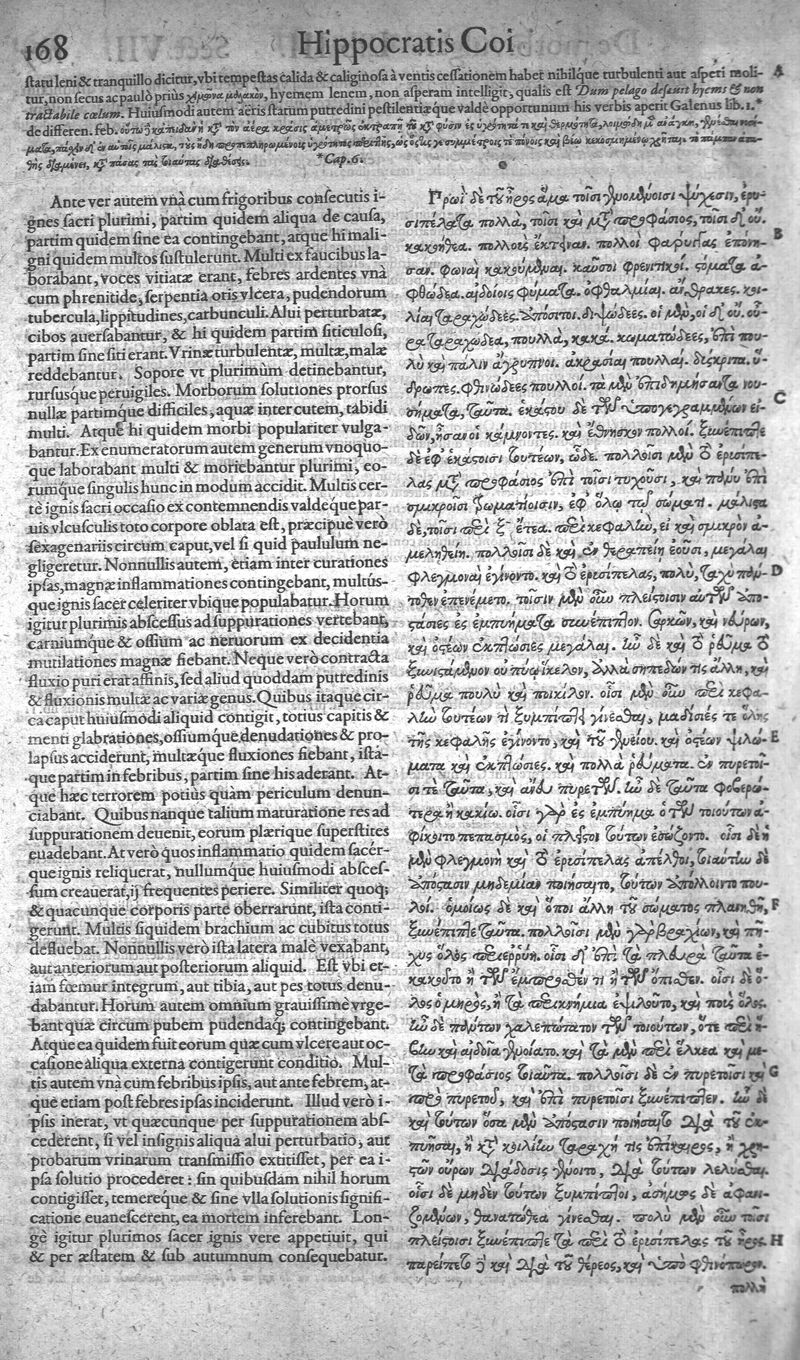 168
Hippocratis Coi
statu leni & tranquillo dicitur, vbi tempestas calida & caliginosa à ventis cessationem habet nihilque turbulenti aut asperi moli- A
tur, non secus ac paulò prius χειμῶνα μαλθακὸν, hyemem lenem, non asperam intelligit, qualis est Dum pelago desæuit hyems & non
tractabile cœlum. Huiusmodi autem aëris statum putredini pestilentiæque valdè opportunum his verbis aperit Galenus lib. 1.*
de differen. feb.
*Cap. 6.
Ante ver autem vnà cum frigoribus consecutis i-
gnes sacri plurimi, partim quidem aliqua de causa,
partim quidem sine ea contingebant, atque hi mali-
gni quidem multos sustulerunt. Multi ex faucibus la-
borabant, voces vitiatæ erant, febres ardentes vnà
cum phrenitide, serpentia oris vlcera, pudendorum
tubercula, lippitudines, carbunculi. Alui perturbatæ,
cibos auersabantur, & hi quidem partim siticulosi,
partim sine siti erant. Vrinæ turbulentæ, multæ, malæ
reddebantur. Sopore vt plurimùm detinebantur,
rursusque peruigiles. Morborum solutiones prorsus
nullæ partimque difficiles, aquæ inter cutem, tabidi
multi. Atque hi quidem morbi populariter vulga-
bantur. Ex enumeratorum autem generum vnoquo-
que laborabant multi & moriebantur plurimi, eo-
rumque singulis hunc in modum accidit. Multis cer-
tè ignis sacri occasio ex contemnendis valdeque par-
uis vlcusculis toto corpore oblata est, præcipuè verò
sexagenariis circum caput, vel si quid paululum ne-
gligeretur. Nonnullis autem, etiam inter curationes
ipsas, magnæ inflammationes contingebant, multús-
que ignis sacer celeriter vbique populabatur. Horum
igitur plurimis abscessus ad suppurationes vertebant,
carniumque & ossium ac neruorum ex decidentia
mutilationes magnæ fiebant. Neque verò contracta
fluxio puri erat affinis, sed aliud quoddam putredinis
& fluxionis multæ ac variæ genus. Quibus itaque cir-
ca caput huiusmodi aliquid contigit, totius capitis &
menti glabrationes, ossiumque denudationes & pro-
lapsus acciderunt, multæque fluxiones fiebant, ista-
que partim in febribus, partim sine his aderant. At-
que hæc terrorem potiùs quàm periculum denun-
ciabant. Quibus nanque talium maturatione res ad
suppurationem deuenit, eorum plærique superstites
euadebant. At verò quos inflammatio quidem sacér-
que ignis reliquerat, nullumque huiusmodi absces-
sum creauerat, ij frequentes periere. Similiter quoq;
& quacunque corporis parte oberrarunt, ista conti-
gerunt. Multis siquidem brachium ac cubitus totus
defluebat. Nonnullis verò ista latera malè vexabant,
aut anteriorum aut posteriorum aliquid. Est vbi et-
iam fœmur integrum, aut tibia, aut pes totus denu-
dabantur. Horum autem omnium grauissimè vrge-
bant quæ circum pubem pudendaq; contingebant.
Atque ea quidem fuit eorum quæ cum vlcere aut oc-
casione aliqua externa contigerunt conditio. Mul-
tis autem vnà cum febribus ipsis, aut ante febrem, at-
que etiam post febres ipsas inciderunt. Illud verò i-
psis inerat, vt quæcunque per suppurationem abs-
cederent, si vel insignis aliqua alui perturbatio, aut
probarum vrinarum transmissio extitisset, per ea i-
psa solutio procederet: sin quibusdam nihil horum
contigisset, temereque & sine vlla solutionis signifi-
catione euanescerent, ea mortem inferebant. Lon-
gè igitur plurimos sacer ignis vere appetiuit, qui
& per æstatem & sub autumnum consequebatur.
Πρωῒ δὲ τοῦ ἦρος ἅμα τοῖσι γενομένοισι ψύχεσιν, ἐρυ-
σιπέλατα πολλὰ, τοῖσι καὶ μετὰ προφάσιος, τοῖσι δ' οὔ.
κακοήθεα. πολλοὺς ἔκτειναν. πολλοὶ φάρυγγας ἐπόνη- B
σαν. φωναὶ κακούμεναι. καῦσοι φρενιτικοί. στόματα ἀ-
φθώδεα. αἰδοίοις φύματα. ὀφθαλμίαι. ἄνθρακες. κοι-
λίαι ταραχώδεες. ἀπόσιτοι. διψώδεες. οἱ μὲν, οἱ δ' οὔ. οὖ-
ρα ταραχώδεα, πουλλὰ, κακά. κωματώδεες, ἐπὶ που-
λὺ καὶ πάλιν ἄγρυπνοι. ἀκρασίαι πουλλαί. δύσκριτα. ὕ-
δρωπες. φθινώδεες πουλλοί. τὰ μὲν ἐπιδημήσαντα νου-
σήματα, ταῦτα. ἑκάστου δὲ τῶν ὑπογεγραμμένων εἰ- C
δῶν, ἦσαν οἱ κάμνοντες. καὶ ἔθνησκον πολλοί. ξυνέπιπτε
δὲ ἐφ' ἑκάστοισι τουτέων, ὧδε. πολλοῖσι μὲν τὸ ἐρισίπε-
λας μετὰ προφάσιος ἐπὶ τοῖσι τυχοῦσι, καὶ πάνυ ἐπὶ
σμικροῖσι τρωματίοισιν, ἐφ' ὅλῳ τῷ σώματι. μάλιστα
δὲ, τοῖσι περὶ ξ΄ ἔτεα. περὶ κεφαλὴν, εἰ καὶ σμικρὸν ἀ-
μεληθείη. πολλοῖσι δὲ καὶ ἐν θεραπείῃ ἐοῦσι, μεγάλαι
φλεγμοναὶ ἐγίνοντο. καὶ τὸ ἐρισίπελας, πολὺ, ταχὺ πάν- D
τοθεν ἐπενέμετο. τοῖσιν μὲν οὖν πλείστοισιν αὐτῶν ἀπο-
στάσιες ἐς ἐμπυήματα συνέπιπτον. σαρκῶν, καὶ νεύρων,
καὶ ὀστέων ἐκπτώσιες μεγάλαι. ἦν δὲ καὶ τὸ ῥεῦμα τὸ
ξυνιστάμενον οὐ πύῳ ἴκελον, ἀλλὰ σηπεδών τις ἄλλη, καὶ
ῥεῦμα πουλὺ καὶ ποικίλον. οἷσι μὲν οὖν περὶ κεφα-
λὴν τουτέων τι ξυμπίπτῃ γίνεσθαι, μαδίσιές τε ὅλης
τῆς κεφαλῆς ἐγίνοντο, καὶ τοῦ γενείου. καὶ ὀστέων ψιλώ- E
ματα καὶ ἐκπτώσιες. καὶ πολλὰ ῥεύματα. ἐν πυρετοῖ-
σί τε ταῦτα, καὶ ἄνευ πυρετῶν. ἦν δὲ ταῦτα φοβερώ-
τερα ἢ κακίω. οἷσι γὰρ ἐς ἐμπύημα ὁ τῶν τοιούτων ἀ-
φίκοιτο πεπασμὸς, οἱ πλεῖστοι τούτων ἐσώζοντο. οἷσι δὲ ἡ
μὲν φλεγμονὴ καὶ τὸ ἐρισίπελας ἀπέλθοι, τοιαύτην δὲ
ἀπόστασιν μηδεμίαν ποιήσαιτο, τούτων ἀπόλλοιντο που-
λοί. ὁμοίως δὲ καὶ ὅποι ἄλλη τοῦ σώματος πλανηθῇ, F
ξυνέπιπτε ταῦτα. πολλοῖσι μὲν γὰρ βραχίων, καὶ πῆ-
χυς ὅλος περιεῤῥύη. οἷσι δ' ἐπὶ τὰ πλευρὰ ταῦτα ἐ-
κακοῦτο ἢ τῶν ἔμπροσθέν τι ἢ τῶν ὄπισθεν. οἷσι δὲ ὅ-
λος ὁ μηρὸς, ἢ τὰ περὶ κνήμια ἐψιλοῦτο, καὶ ποὺς ὅλος.
ἦν δὲ πάντων χαλεπώτατον τῶν τοιούτων, ὅτε περὶ ἥ-
βην καὶ αἰδοῖα γενοίατο. καὶ τὰ μὲν περὶ ἕλκεα καὶ με-
τὰ προφάσιος τοιαῦτα. πολλοῖσι δὲ ἐν πυρετοῖσι καὶ G
πρὸ πυρετοῦ, καὶ ἐπὶ πυρετοῖσι ξυνέπιπτεν. ἦν δὲ
καὶ τούτων ὅσα μὲν ἀπόστασιν ποιήσαιτο διὰ τοῦ ἐκ-
πυῆσαι, ἢ κατὰ κοιλίην ταραχή τις ἐπίκαιρος, ἢ χρη-
στῶν οὔρων διάδοσις γένοιτο, διὰ τούτων λελύσθαι.
οἷσι δὲ μηδὲν τούτων ξυμπίπτοι, ἀσήμως δὲ ἀφανι-
ζομένων, θανατώδεα γίνεσθαι. πολὺ μὲν οὖν τοῖσι
πλείστοισι ξυνέπιπτε τὰ περὶ τὸ ἐρισίπελας τοῦ ἦρος. H
παρείπετο δὲ καὶ διὰ τοῦ θέρεος, καὶ ὑπὸ φθινόπωρον.
πολλὴ